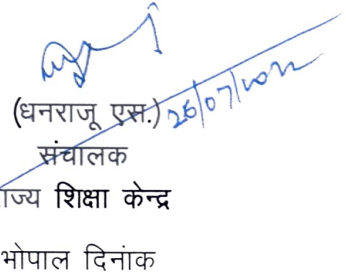 (धनराजू एस.) 26/07/2022
संचालक
राज्य शिक्षा केन्द्र
भोपाल दिनांक